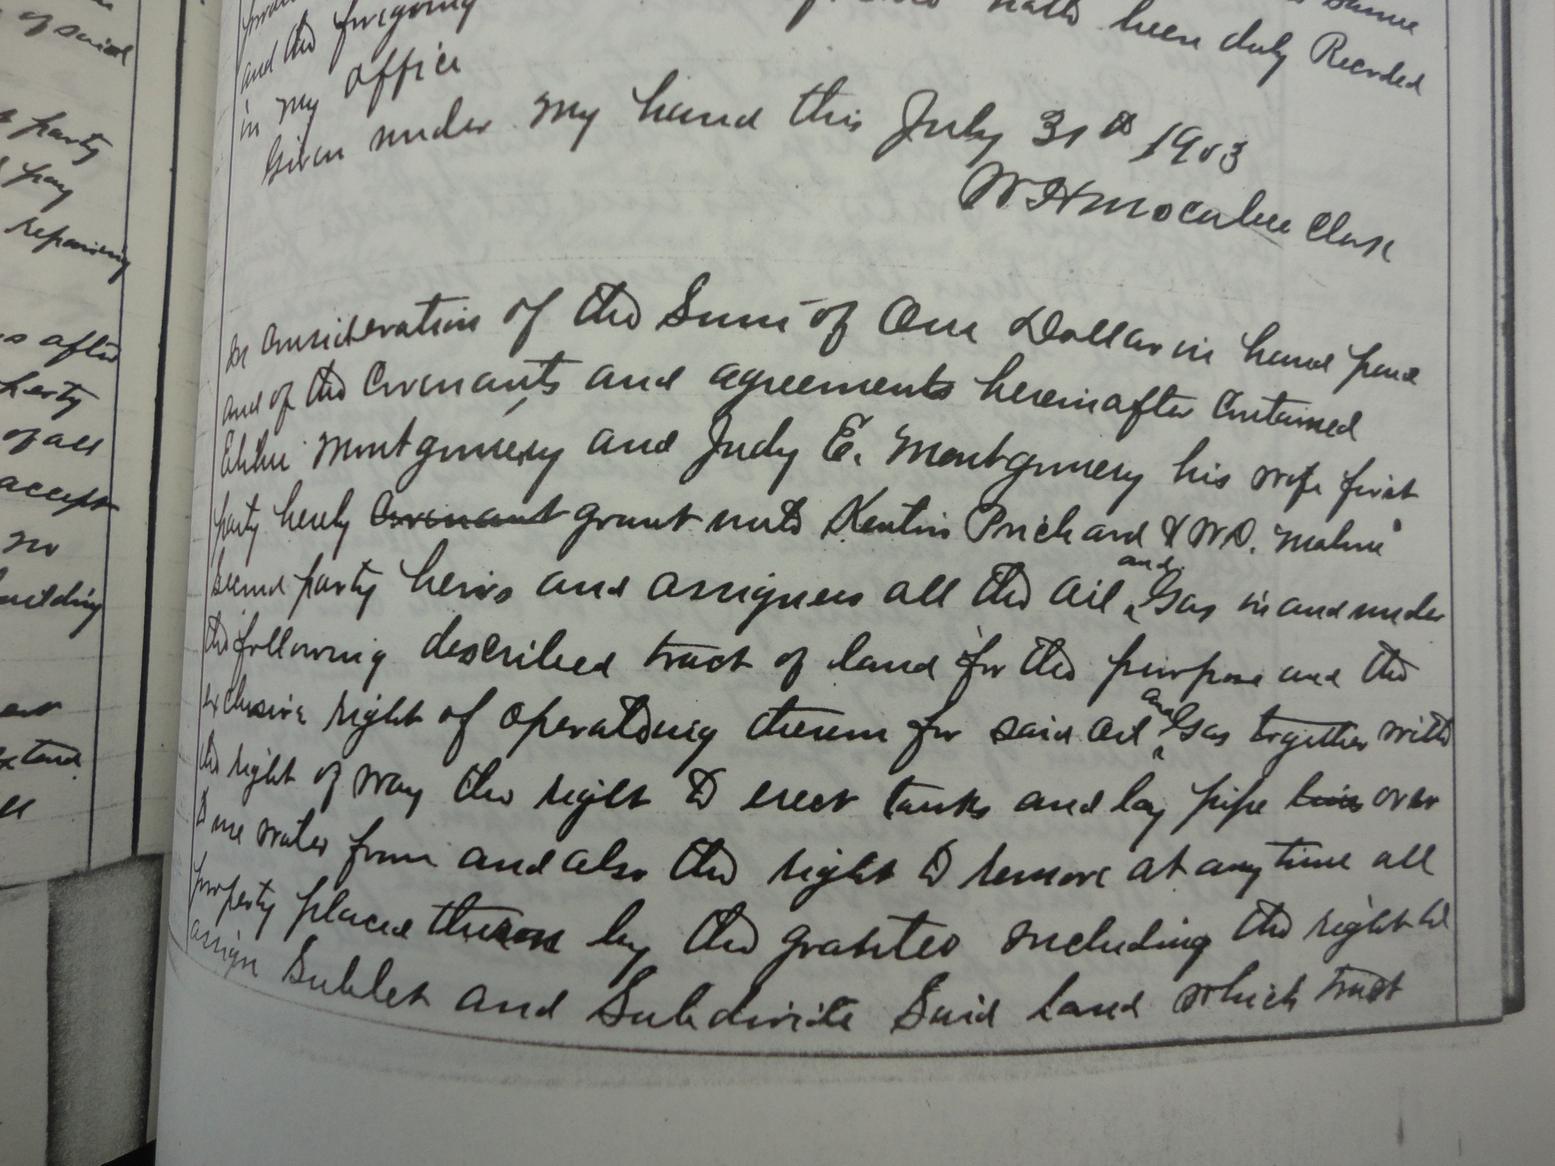 of said
party
pay
repairing
s after
party
of all
accept
no
building
extend
ll
hath been duly Recorded
and the foregoing
in my office
Given under my hand this July 31st 1903
W H Clerk
In Consideration of the Sum of One Dollar in hand paid
and of the Covenants and agreements hereinafter Contained
Elihu Montgomery and Judy E. Montgomery his wife first
party hereby Covenant grant unto Prichard & W.D.
second party heirs and assignees all the Oil and Gas in and under
the following described tract of land for the purpose and the
exclusive right of operating therein for said Oil and Gas together with
the right of way the right to erect tanks and lay pipe lines over
to use water from and also the right to remove at any time all
property placed thereon by the grantee including the right to
assign Sublet and Subdivide Said land which tract